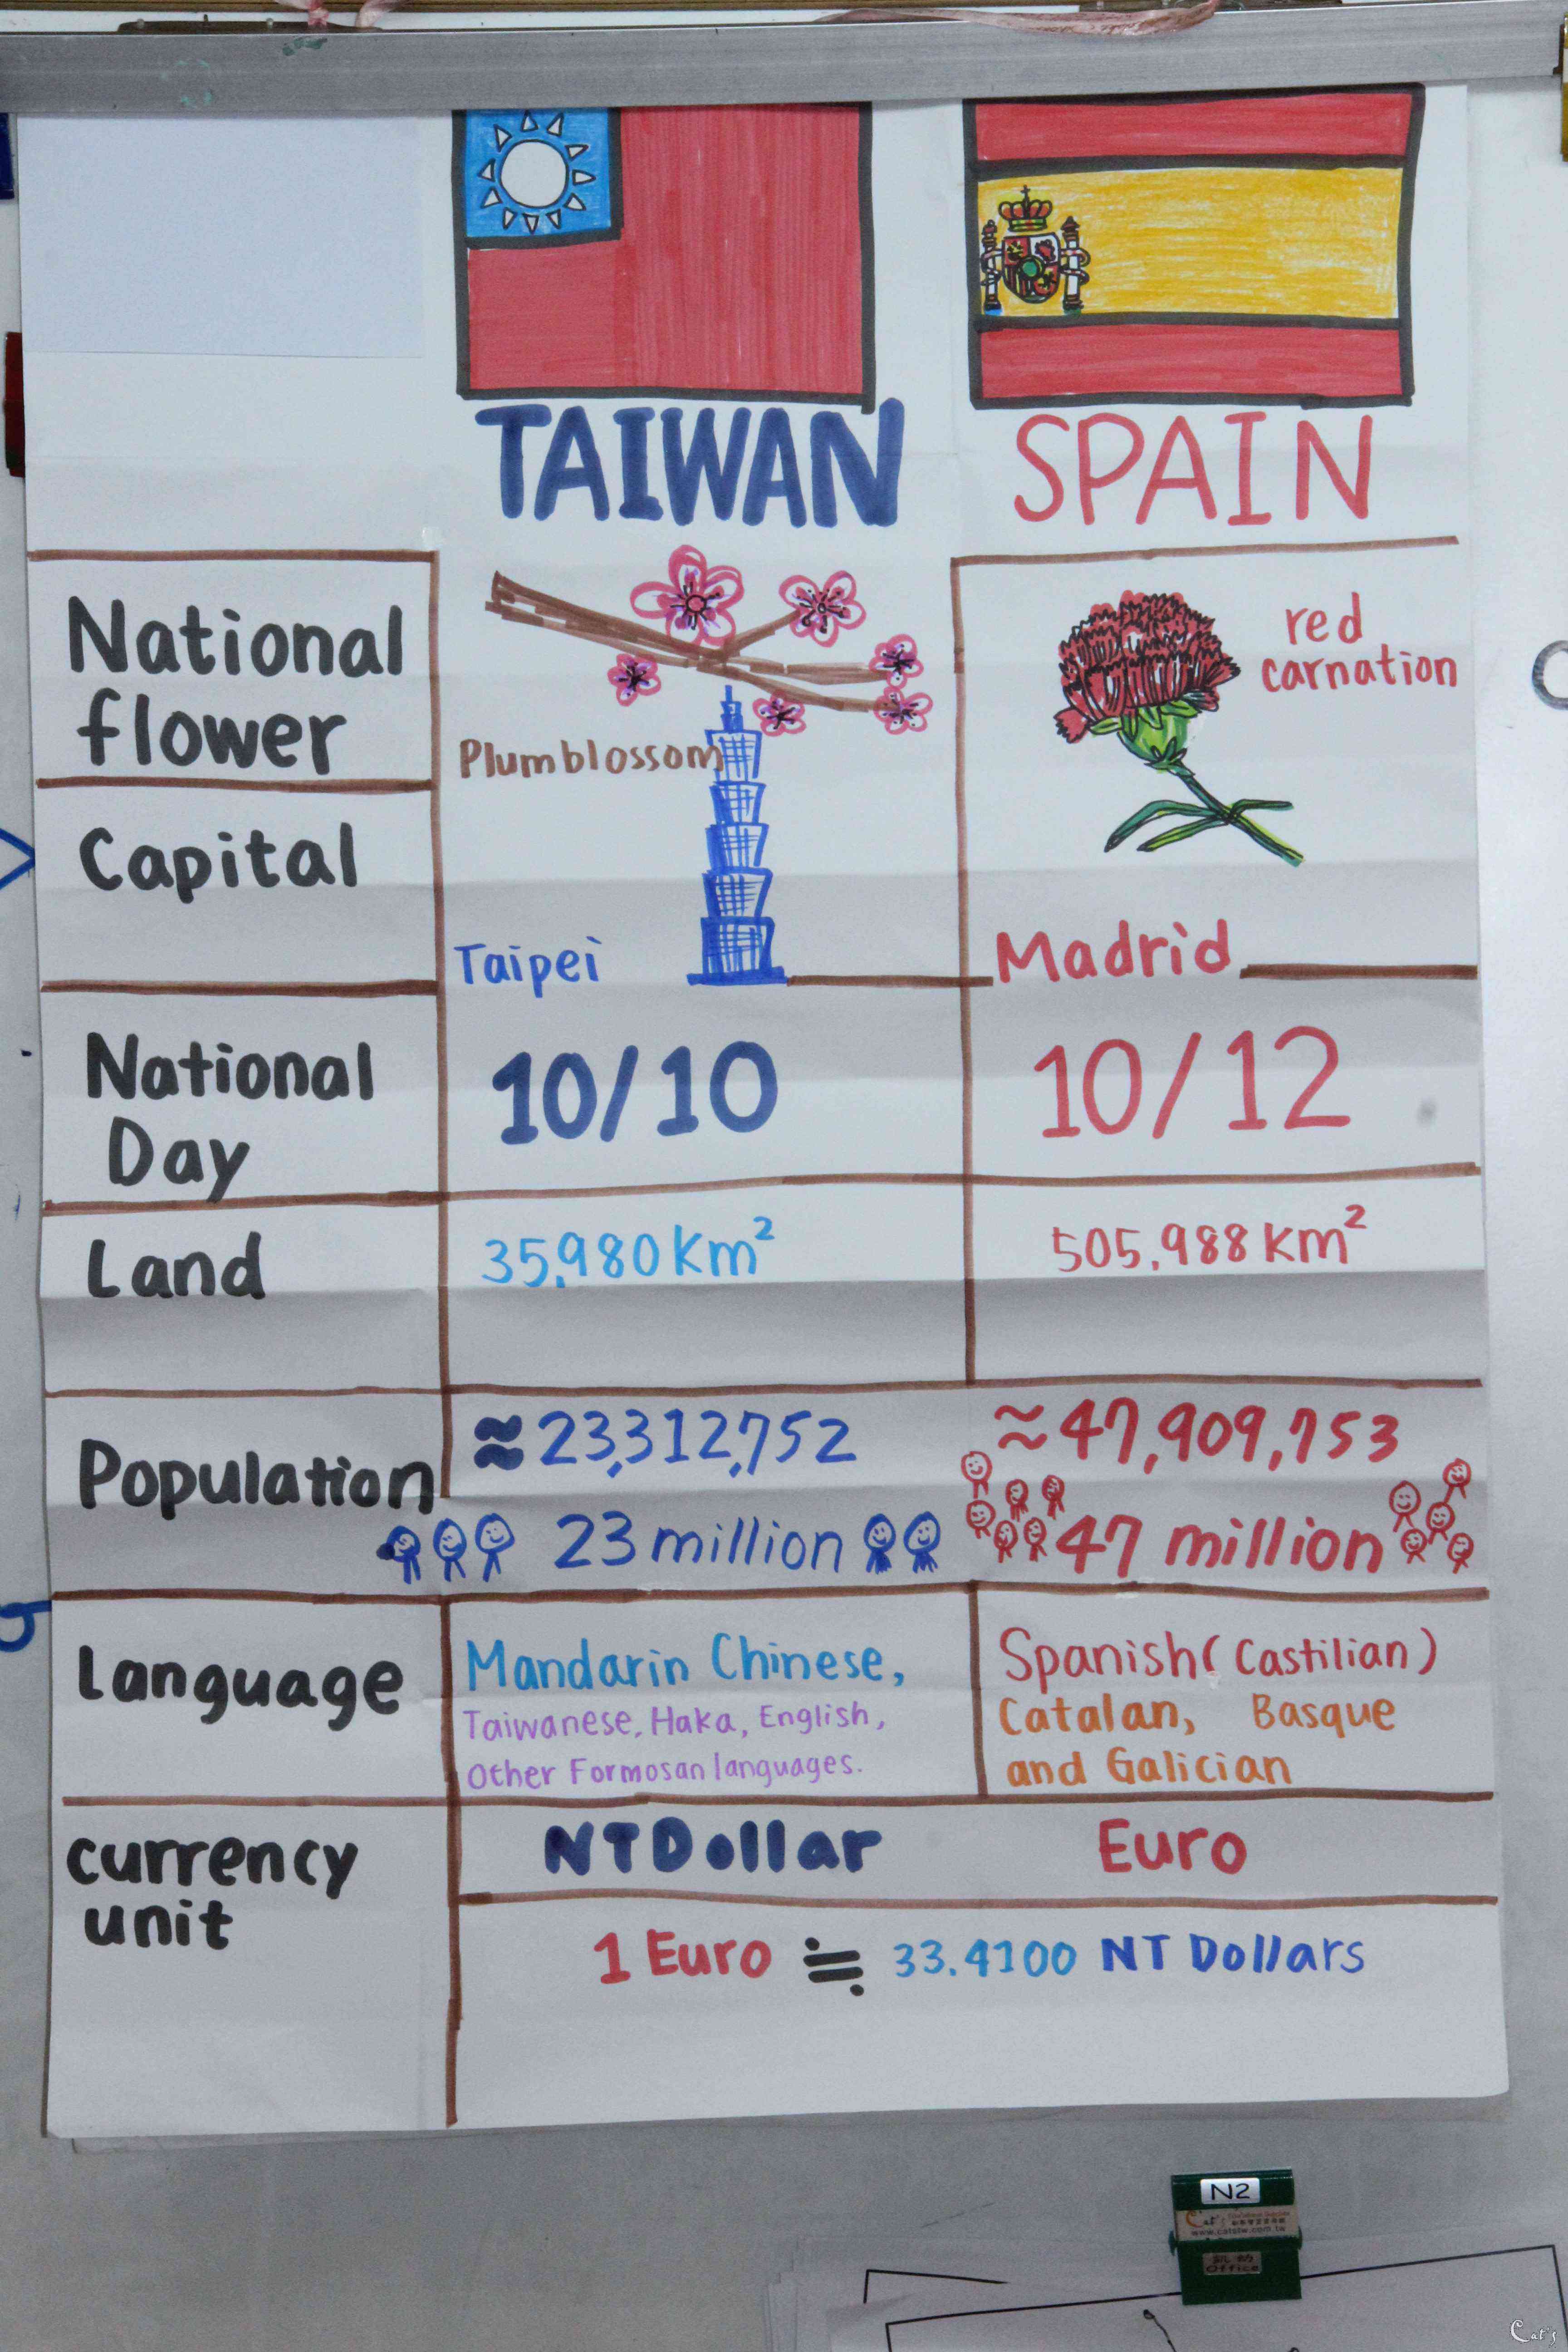 TAIWAN SPAIN
National
flower
Plum blossom
red
carnation
Capital
Taipei
Madrid
National
Day
10/10
10/12
Land
35,980 km²
505.988 km²
Population
≈23,312,752
23 million
≈47,909,753
47 million
Language
Mandarin Chinese,
Taiwanese, Haka, English,
Other Formosan languages.
Spanish (Castilian)
Catalan, Basque
and Galician
currency
unit
NT Dollar
Euro
1 Euro ≒ 33.4100 NT Dollars
N2
Cat's
www.catstw.com.tw
Office
Cat's